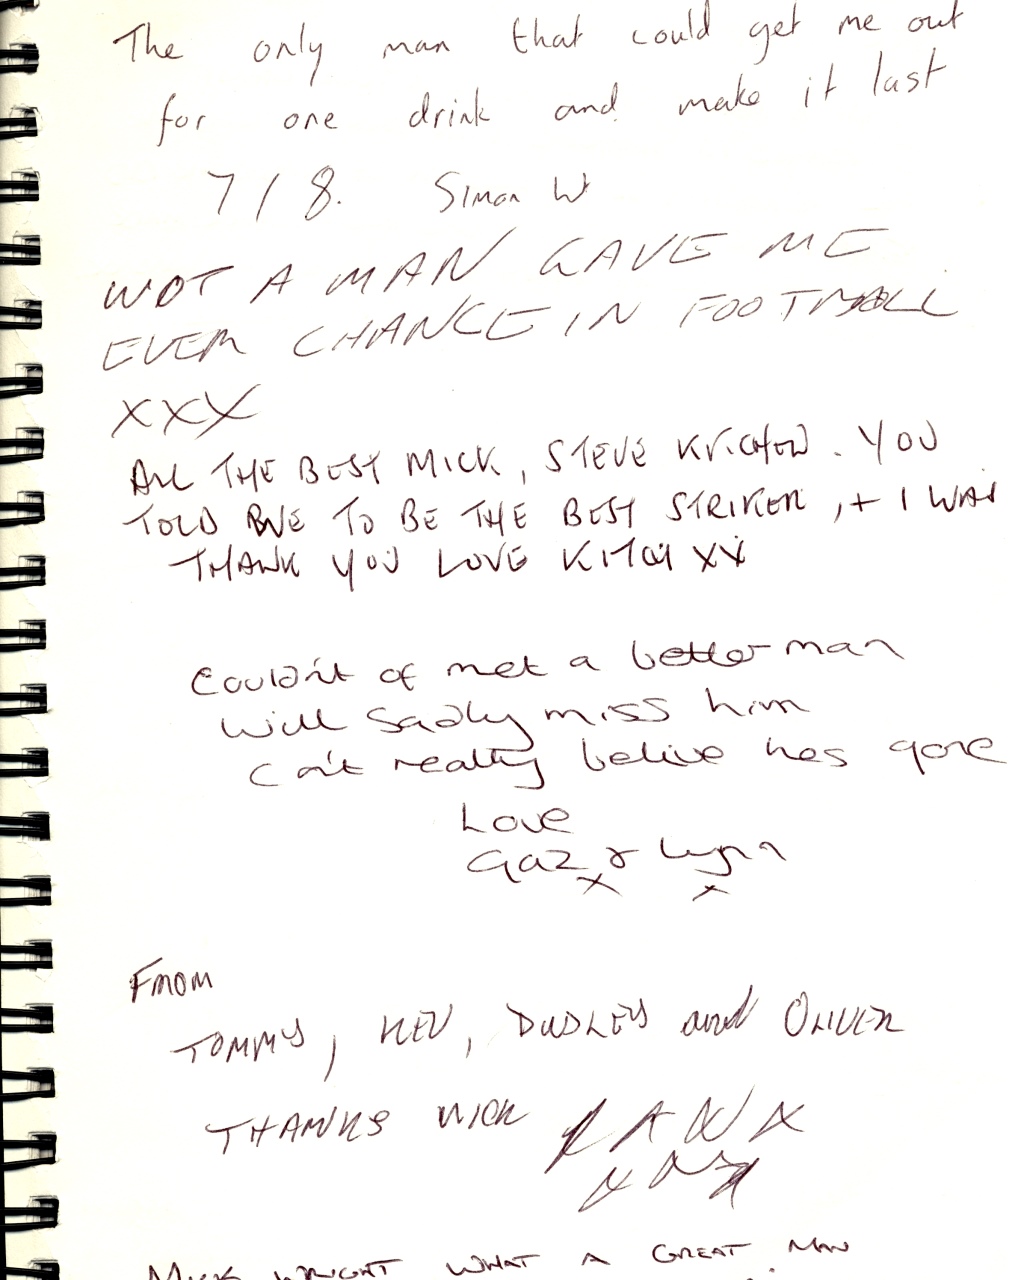 The only man that could get me out
for one drink and make it last
7/8. Simon W
WOT A MAN GAVE ME
EVER CHANCE IN FOOTBALL
XXX
ALL THE BEST MICK, STEVE . YOU
TOLD ME TO BE THE BEST STRIKER, + I WAS
THANK YOU LOVE KITCH XX
Couldn't of met a better man
will sadly miss him
can't really belive hes gone
Love
Gaz & Lynn
x x
FROM
TOMMY, KEV, DUDLEY and OLIVER
THANKS MICK
MICK WRIGHT WHAT A GREAT MAN